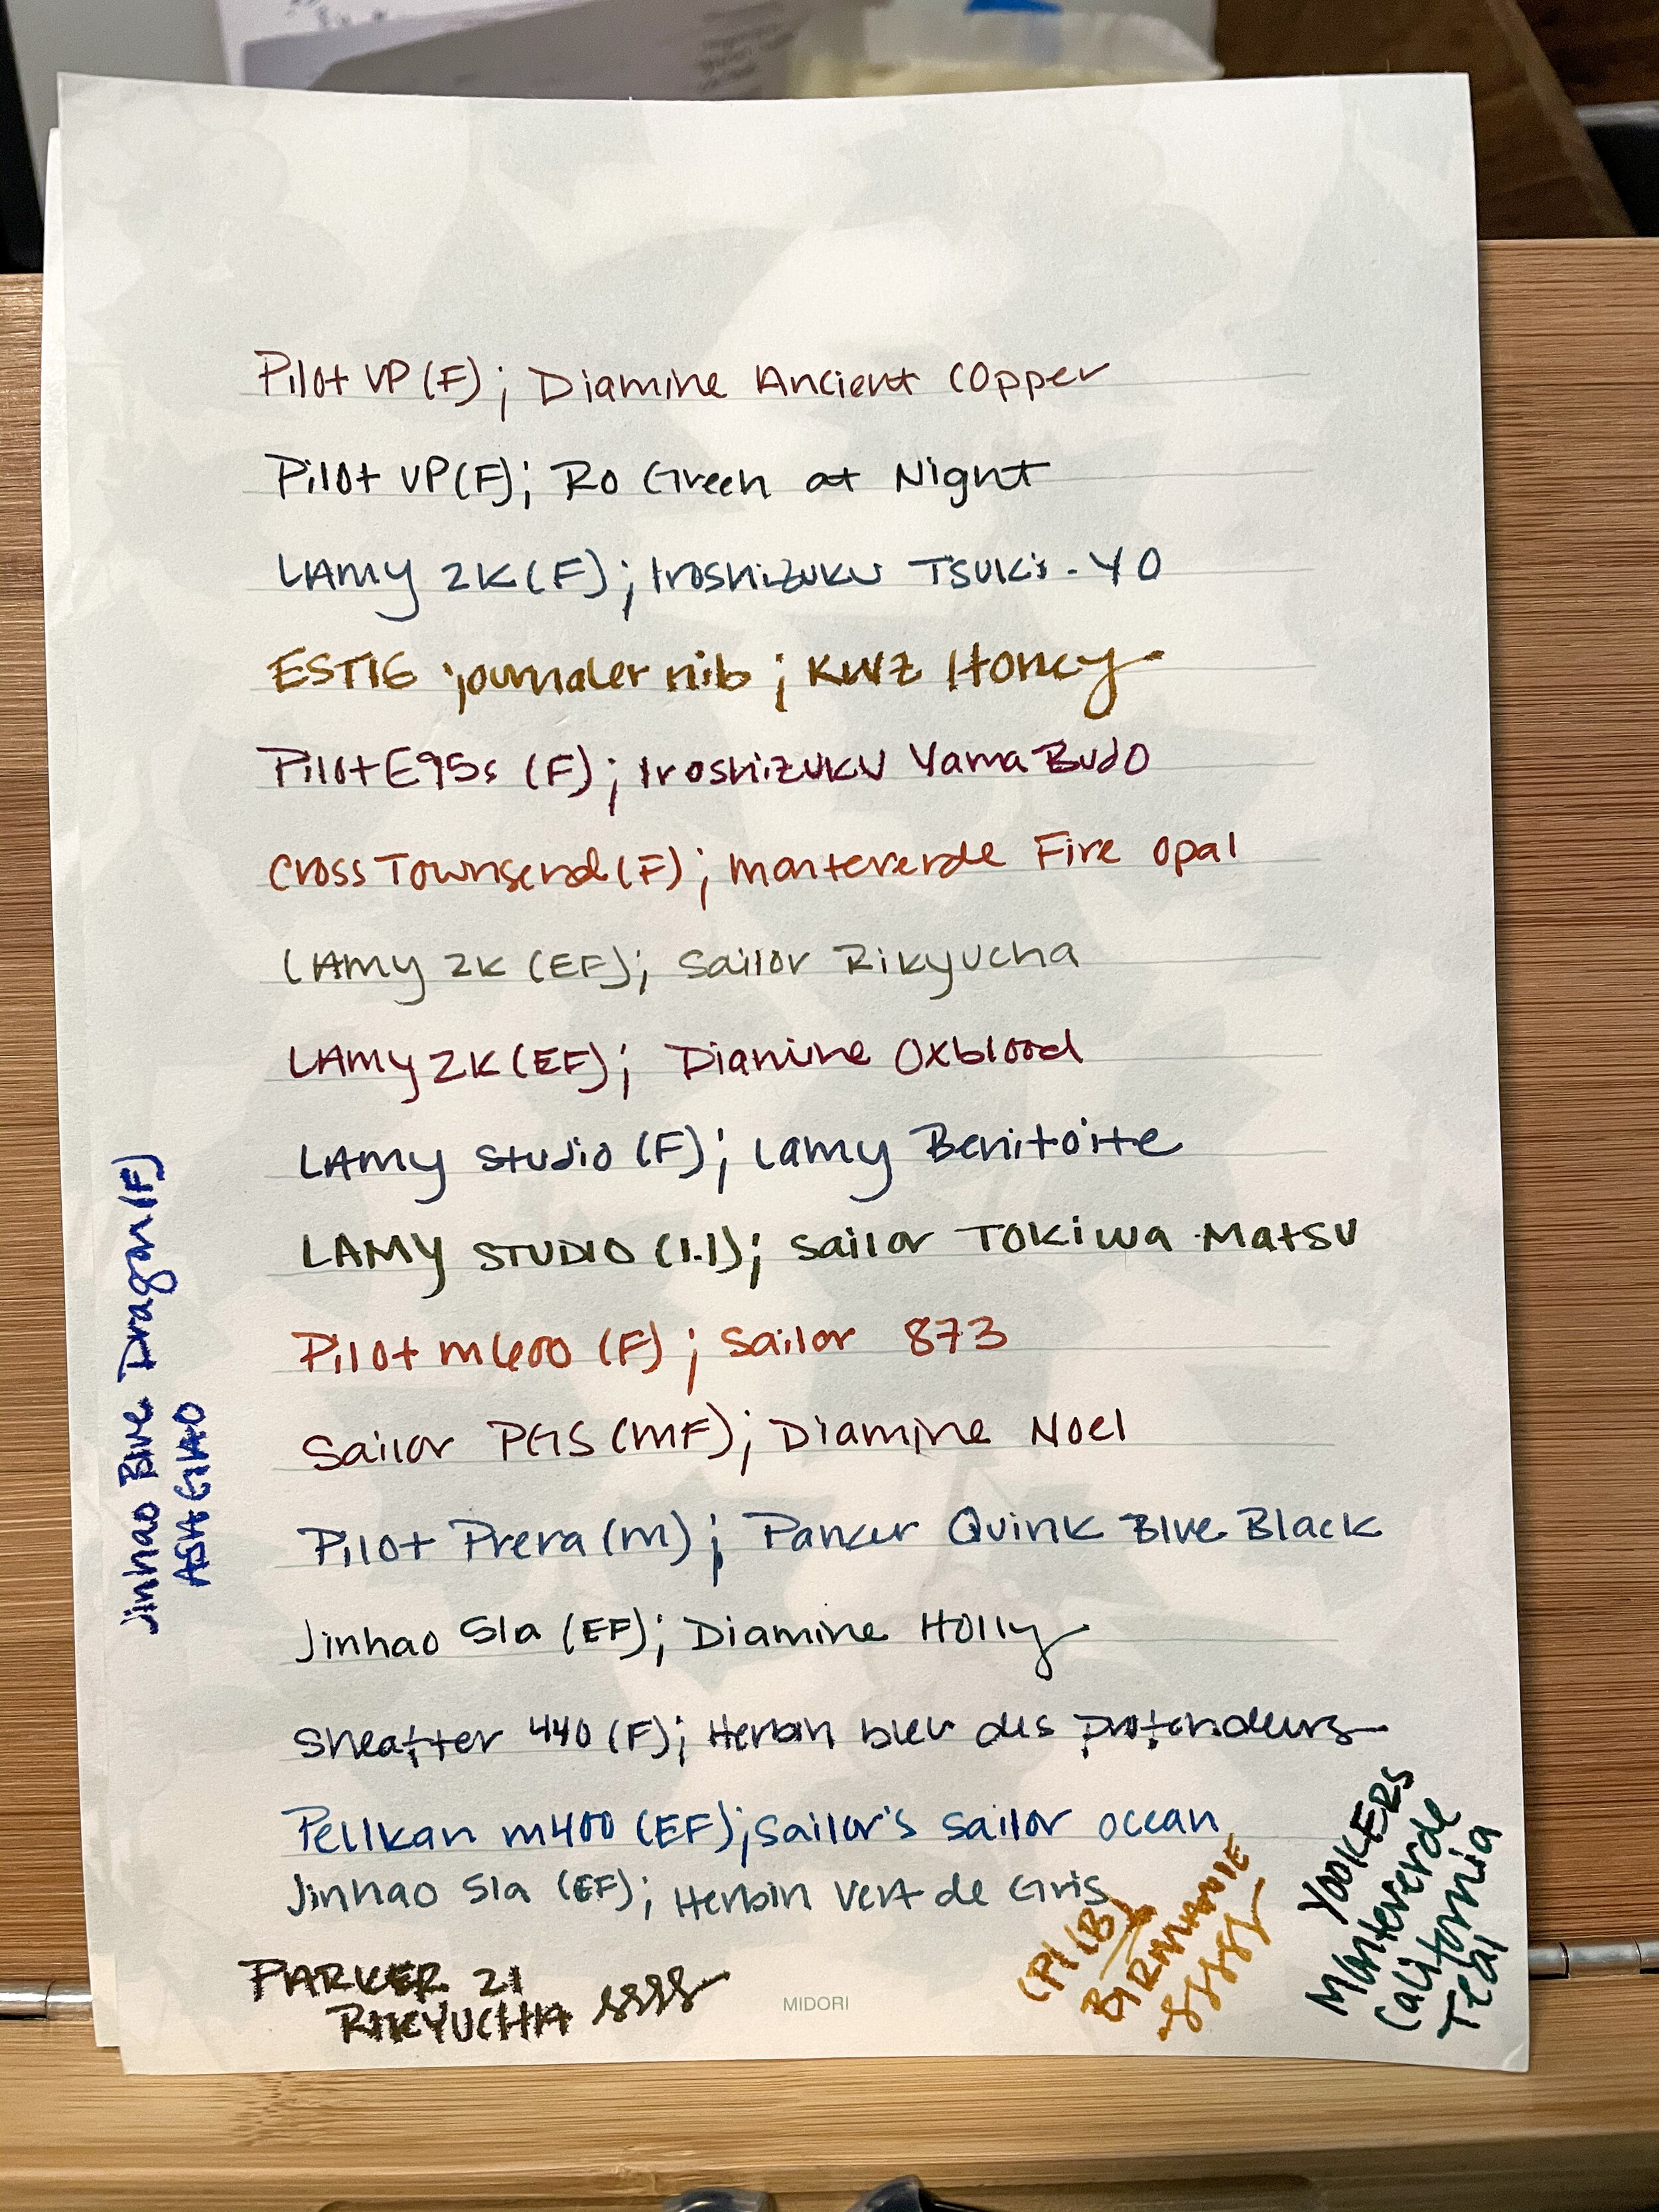 Pilot VP (F); Diamine Ancient Copper
Pilot VP (F); RO Green at Night
LAmy 2K (F); Iroshizuku Tsuki-Yo
ESTIE journaler nib; KWZ Honey
Pilot E95s (F); Iroshizuku Yama Budo
Cross Townsend (F); monteverde Fire opal
LAmy 2K (EF); Sailor Rikyucha
LAmy 2K (EF); Diamine Oxblood
LAmy Studio (F); Lamy Benitoite
LAMY STUDIO (1.1); Sailor TOKiwa Matsu
Pilot m600 (F); Sailor 873
Sailor PGS (MF); Diamine Noel
Pilot Prera (m); Parker Quink Blue Black
Jinhao 51a (EF); Diamine Holly
Sheaffer 440 (F); Herbin bleu des profondeurs
Pelikan m400 (EF); Sailor's Sailor ocean
Jinhao 51a (EF); Herbin Vert de Gris
PARKER 21
RIKYUCHA ssss
MIDORI
BIRMANIE
YOOKERS
Monteverde
California
Teal
Jinhao Blue Dragon (F)
ASA GAO